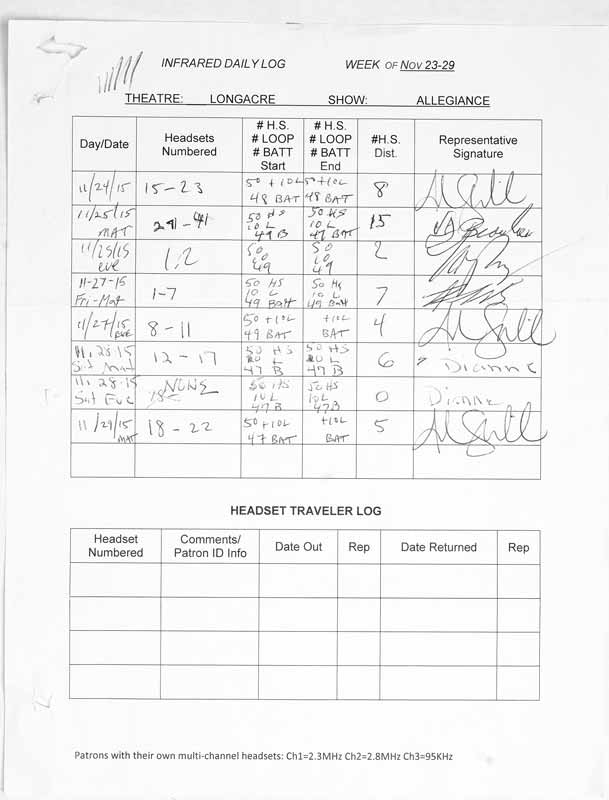 INFRARED DAILY LOG WEEK OF NOV 23-29
THEATRE: LONGACRE SHOW: ALLEGIANCE
Day/Date Headsets Numbered # H.S. # LOOP # BATT Start # H.S. # LOOP # BATT End #H.S. Dist. Representative Signature
11/24/15 15-23 50 +10L 48 BAT 50+10L 48 BAT 8
11/25/15 MAT - 41 50 HS 10 L 49 B 50 HS 10 L 47 BAT 15
11/25/15 eve 1,2 50 10 49 50 10 49 2
11-27-15 Fri-Mat 1-7 50 HS 10 L 49 Batt 50 HS 10 L 49 Batt 7
11/27/15 EVE 8-11 50 +10L 49 BAT +10L BAT 4
11.28.15 Sat Mat 12-17 50 HS L 47 B 50 HS L 47 B 6 Dianne
11.28.15 Sat Eve NONE 50 HS 10L 47B 50 HS 10L 47B 0 Dianne
11/29/15 MAT 18-22 50+10L 47 BAT +10L BAT 5
HEADSET TRAVELER LOG
Headset Numbered Comments/ Patron ID Info Date Out Rep Date Returned Rep
Patrons with their own multi-channel headsets: Ch1=2.3MHz Ch2=2.8MHz Ch3=95KHz